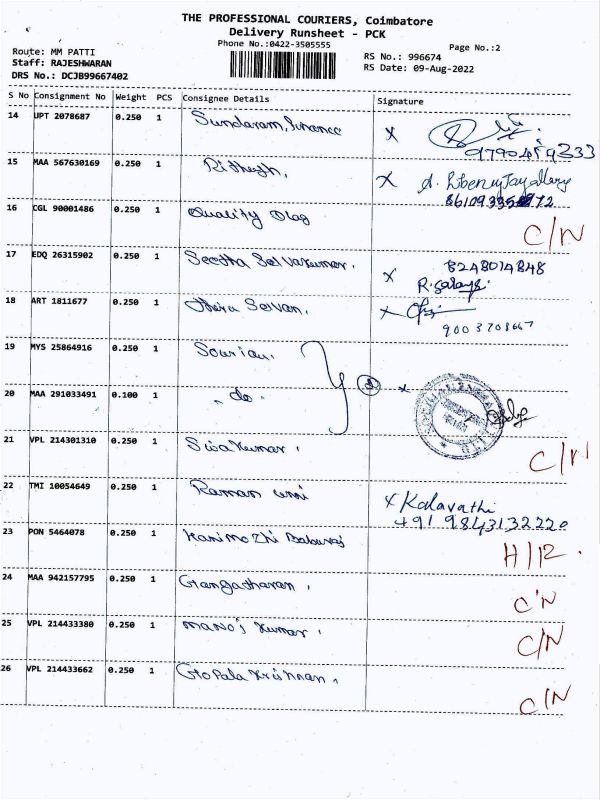 THE PROFESSIONAL COURIERS, Coimbatore
Delivery Runsheet - PCK
Phone No.:0422-3505555
Page No.:2
Route: MM PATTI
Staff: RAJESHWARAN
DRS No.: DCJB99667402
RS No.: 996674
RS Date: 09-Aug-2022
S No Consignment No Weight PCS Consignee Details Signature
14 UPT 2078687 0.250 1 Sundaram, finance X
15 MAA 567630169 0.250 1 Rithesh, X
16 CGL 90001486 0.250 1 Quality C/N
17 EDQ 26315902 0.250 1 Seetha Selvakumar. X 8248014848
18 ART 1811677 0.250 1 Selvan, X
19 MYS 25864916 0.250 1 Sourian.
20 MAA 291033491 0.100 1 " do " 2 X
21 VPL 214301310 0.250 1 Siva Kumar, C/N
22 TMI 10054649 0.250 1 Raman unni X Kalavathi
+91 9843132220
23 PON 5464078 0.250 1 Kanimozhi Baburaj H/R
24 MAA 942157795 0.250 1 Gangatharan, C/N
25 VPL 214433380 0.250 1 Manoj Kumar, C/N
26 VPL 214433662 0.250 1 Gopala Krishnan, C/N